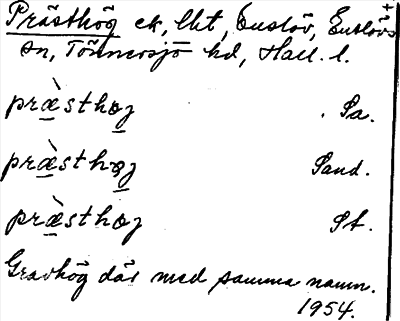 Prästhög ek, lht, Enslöv, Enslövs
sn, Tönnersjö hd, Hall. l.
præ̀sthøʒ Sa.
præ̀sthøʒ Sand.
præ̀sthøʒ St.
Gravhög där med samma namn.
1954.